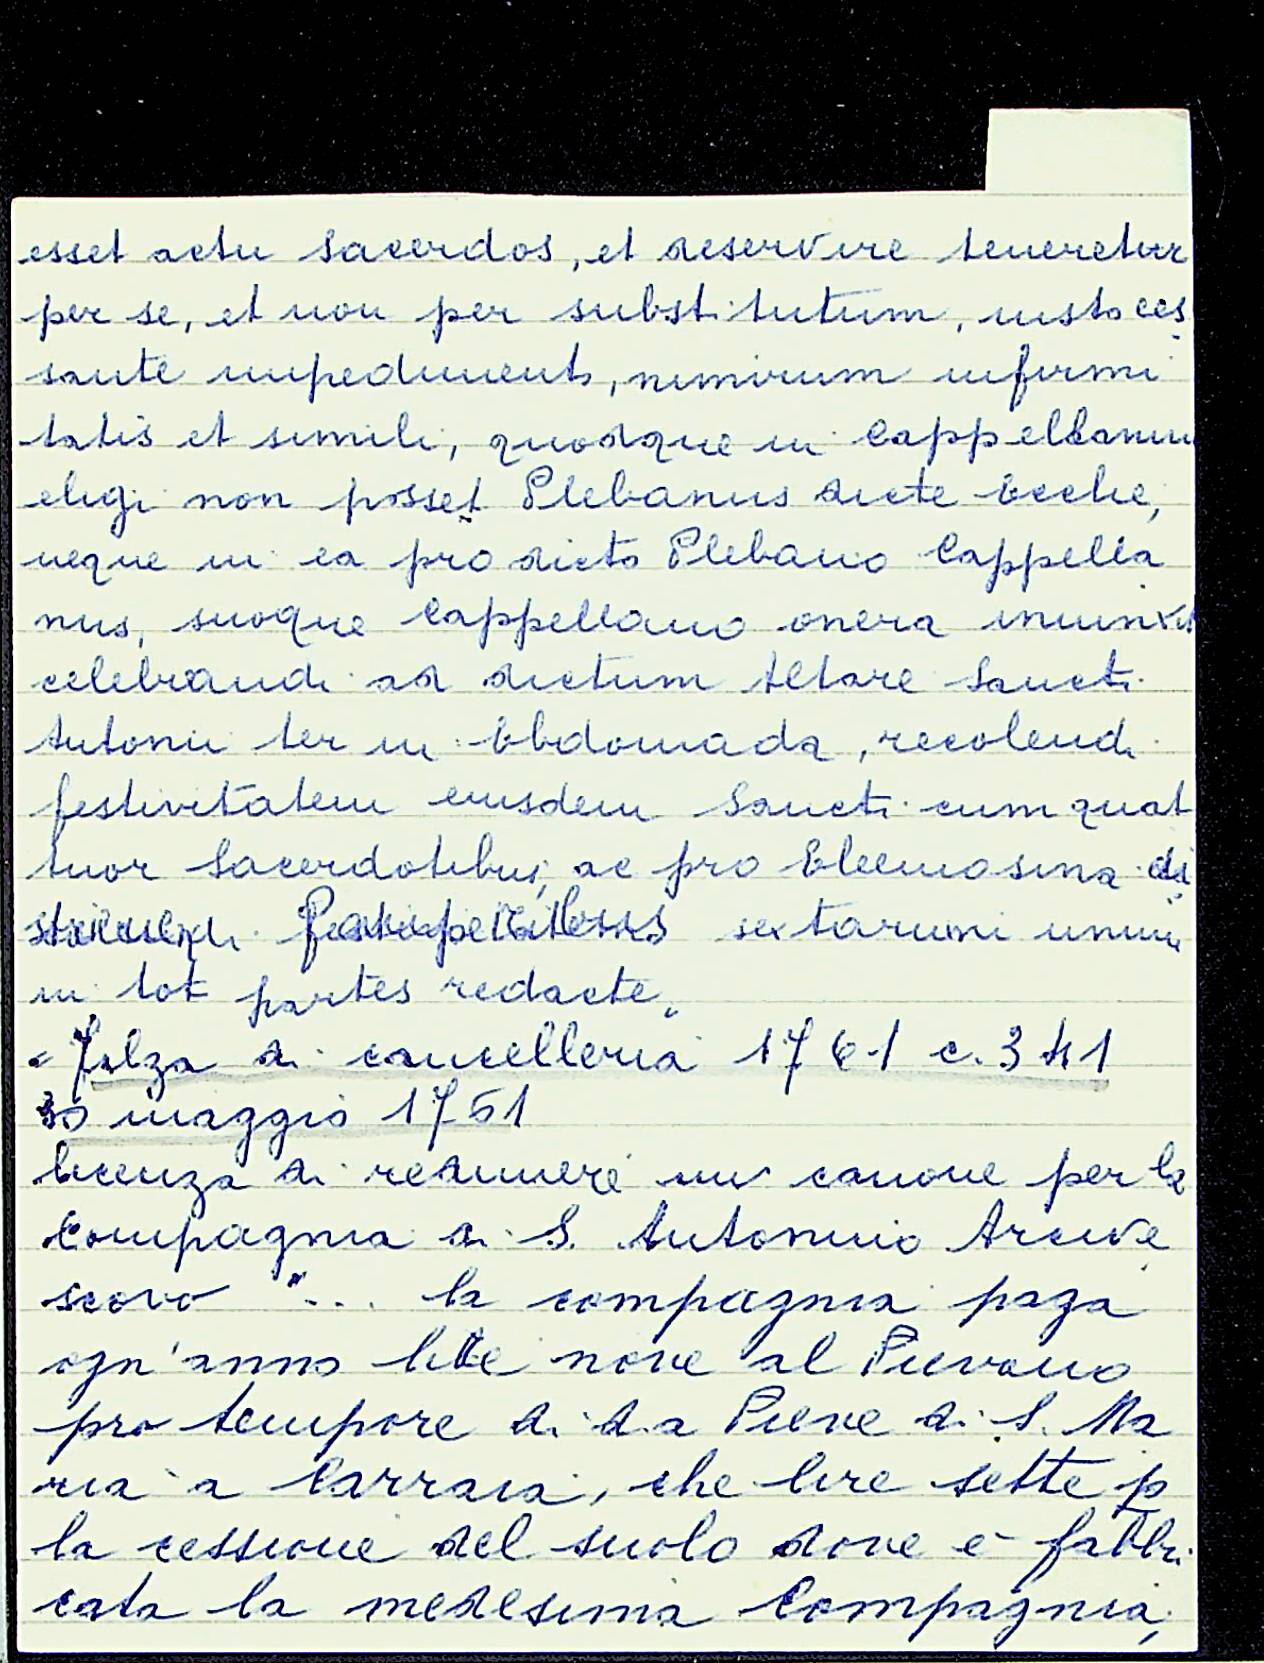 esset actu Sacerdos, et deservire teneretur
per se, et non per substitutum, iusto ces
sante impedimento, nimirum infirmi
tatis et simili, quodque in Cappellanum
eligi non posset Plebanus dicte Ecclie,
neque in ea pro dicto Plebano Cappella
nus, suoque Cappellano onera iniunxit
celebrandi ad dictum Altare Sancti
Antonii ter in Ebdomada, recolendi
festivitatem eiusdem Sancti cum quat
tuor Sacerdotibus, ac pro Eleemosina di
stribuendi Pauperibus sextarium unum
in tot partes redacte.
= Filza di cancelleria 1761 c. 341
30 maggio 1751
licenza di redimere un canone per la
Compagnia di S. Antonino Arcive
scovo "... la compagnia paga
ogn'anno lire nove al Pievano
pro tempore di d.a Pieve di S. Ma
ria a Carraia, che lire sette p
la cessione del suolo dove è fabbri
cata la medesima Compagnia,